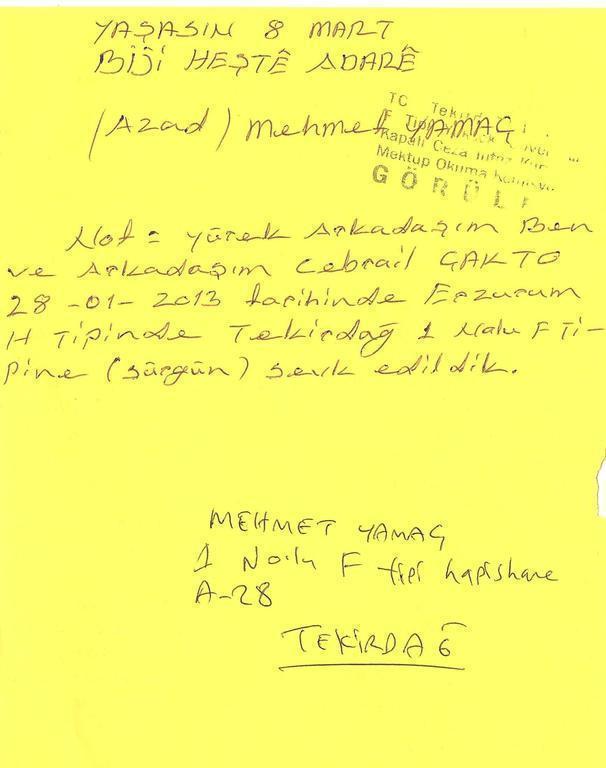 YAŞASIN 8 MART
BİJİ HEŞTÊ ADARÊ
(Azad) Mehmet YAMAÇ
TC Tekird
F Tipi
Kapalı Ceza İnfaz Kur
Mektup Okuma Komisyo
GÖRÜL
Not = yürek Arkadaşım Ben
ve Arkadaşım Cebrail GAKTO
28-01-2013 tarihinde Erzurum
H Tipinde Tekirdağ 1 Nolu F Ti-
pine (sürgün) sevk edildik.
MEHMET YAMAÇ
1 Nolu F tipi hapishane
A-28
TEKİRDAĞ